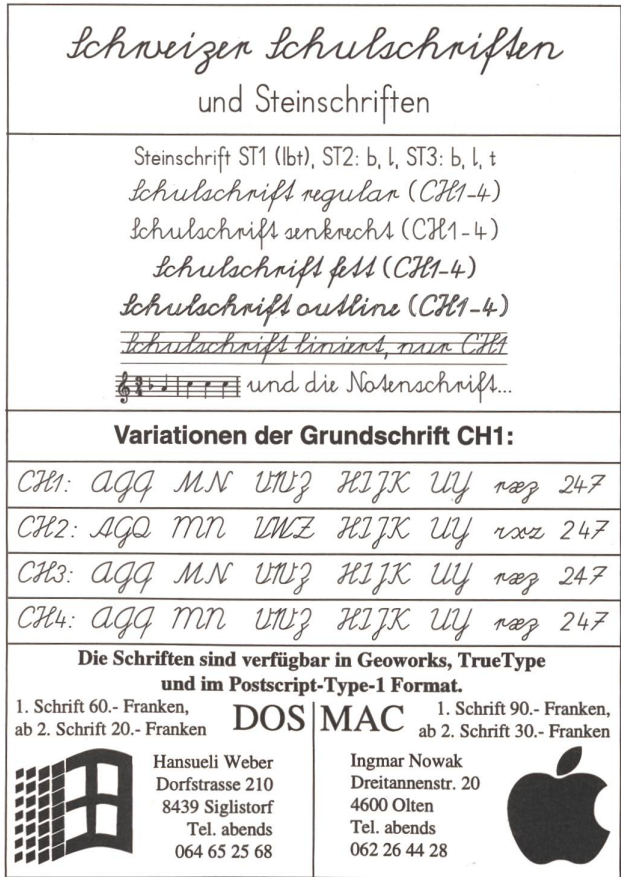 Schweizer Schulschriften
und Steinschriften
Steinschrift ST1 (lbt), ST2: b, l, ST3: b, l, t
Schulschrift regular (CH1-4)
Schulschrift senkrecht (CH1-4)
Schulschrift fett (CH1-4)
Schulschrift outline (CH1-4)
Schulschrift liniert, nur CH1
und die Notenschrift...
Variationen der Grundschrift CH1:
CH1: AGQ MN VWZ HIJK UY rxz 247
CH2: AGQ MN VWZ HIJK UY rxz 247
CH3: AGQ MN VWZ HIJK UY rxz 247
CH4: AGQ MN VWZ HIJK UY rxz 247
Die Schriften sind verfügbar in Geoworks, TrueType
und im Postscript-Type-1 Format.
1. Schrift 60.- Franken,
ab 2. Schrift 20.- Franken
DOS
Hansueli Weber
Dorfstrasse 210
8439 Siglistorf
Tel. abends
064 65 25 68
MAC
1. Schrift 90.- Franken,
ab 2. Schrift 30.- Franken
Ingmar Nowak
Dreitannenstr. 20
4600 Olten
Tel. abends
062 26 44 28